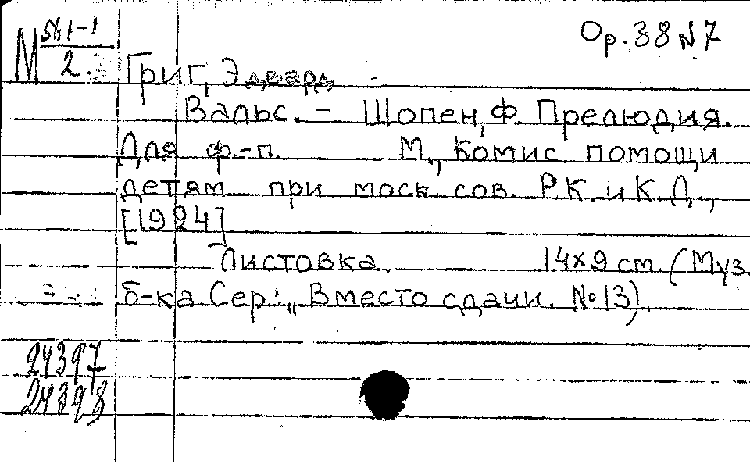 Op. 38 №7
М 581-1
2
Григ, Эдвард
Вальс. - Шопен, Ф. Прелюдия.
Для ф.-п. М., Комис помощи
детям при моск. сов. Р.К. и К.Д.,
[1924]
Листовка. 14x9 cm. (Муз.
б-ка Сер.: „Вместо сдачи. №13).
24397
24398